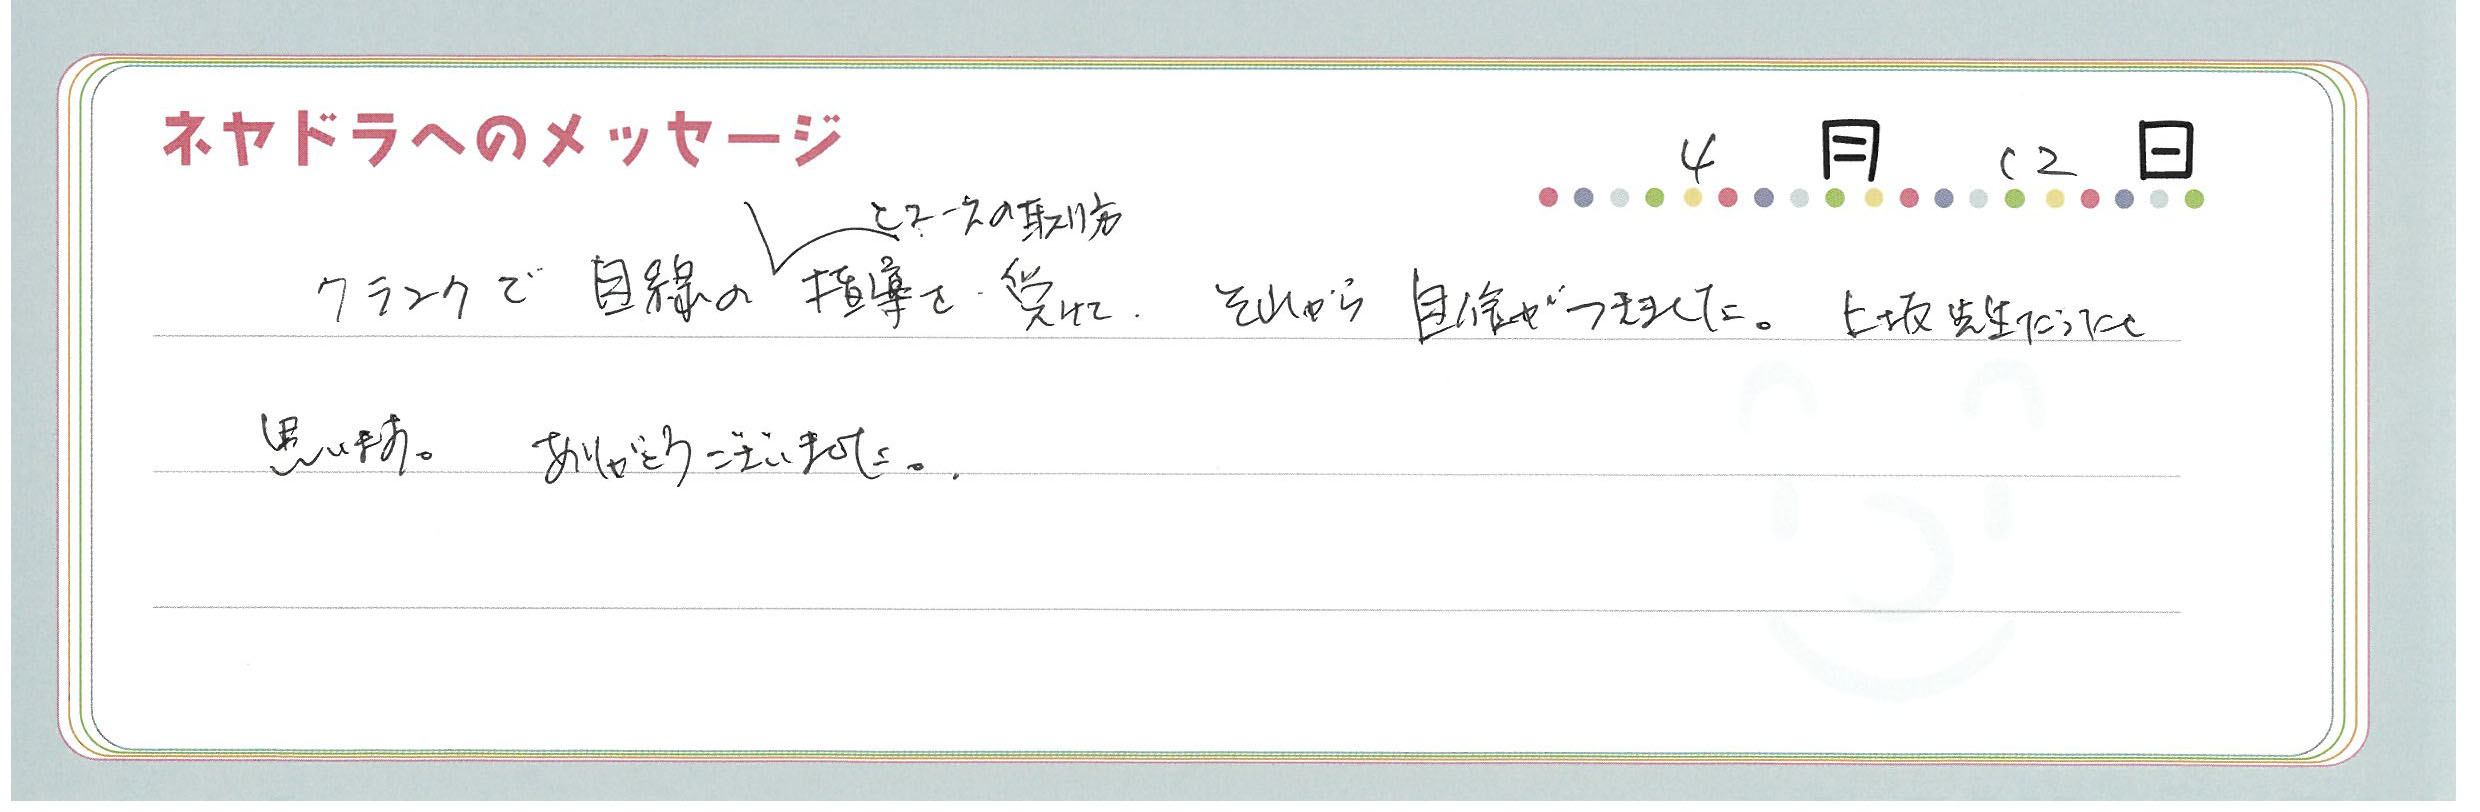 ネヤドラへのメッセージ
4月12日
とコースの取り方
クランクで目線の指導を受けて. それから自信がつきました。上坂先生だったと
思います。 ありがとうございました。